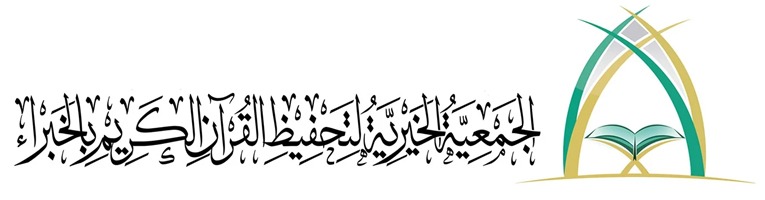 الجَمْعِيَّةُ الخَيْرِيَّةُ لِتَحْفِيظِ القُرْآنِ الكَرِيمِ بِالخَبْرَاءِ